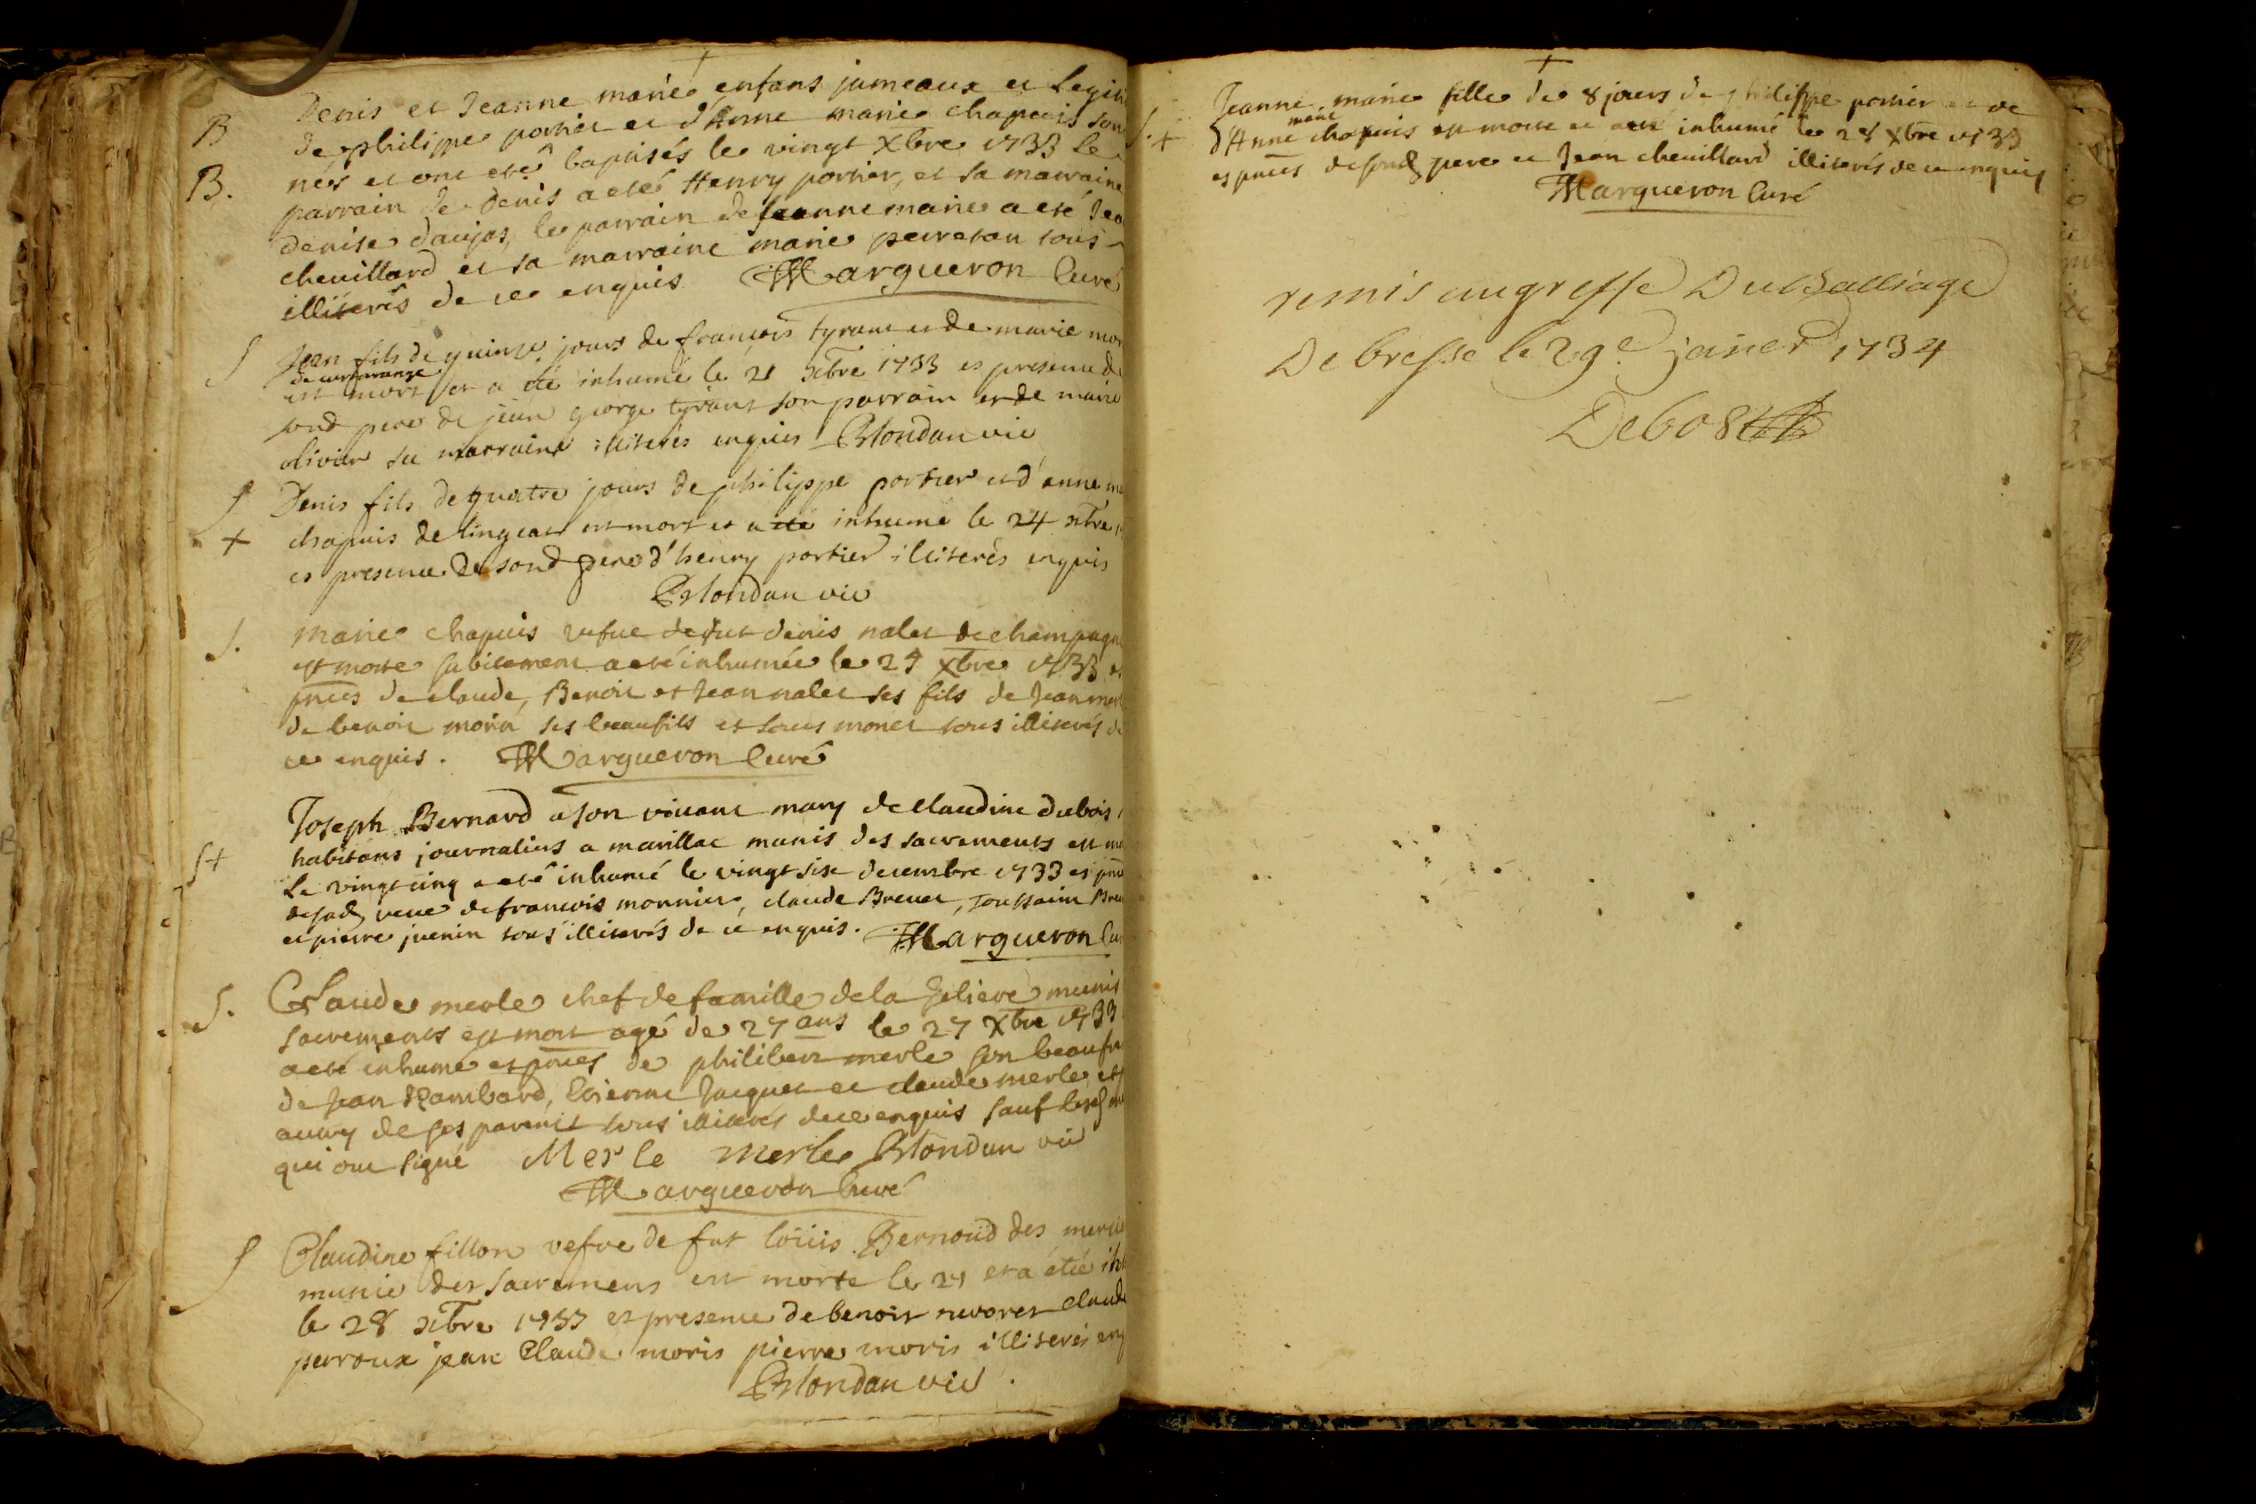 B
Denis et Jeanne marie enfans jumeaux et Legiti
de philippe portier et d'Anne marie chapuis son
B.
nés et ont eté baptisés le vingt Xbre 1733 le
parrain de denis a eté Henry portier, et sa marraine
denise daujas, le parrain de jeanne marie a eté Jea
chevillard et sa marraine marie tous
illiterés de ce enquis Margueron Curé
S
Jean fils de quinze jours de françois tyrant et de marie mor
est mort et a été inhumé le 21 xbre 1733 es presence de
sond pere de jean george tyrant son parrain et de marie
olivier sa marraine illiterés enquis Blondan vic
S
+
Denis fils de quatre jours de philippe portier et d'anne ma
chapuis de lingeat est mort et a été inhumé le 24 xbre
es presence de sond pere d'henry portier illiterés enquis
Blondan vic
S.
marie chapuis vefve de fut denis nalet de champagn
est morte subitement a eté inhumée le 24 xbre 1733 es
pnces de claude, Benoit et Jean nalet ses fils de Jean mor
de benoit morin ses beaufils et monet tous illiterés de
ce enquis. Margueron Curé
S+
Joseph Bernard a son vivant mary de claudine dubois
habitans journaliers a marillac munis des sacrements est mo
Le vingt cinq a eté inhumé le vingt six decembre 1733 es pnce
de sad veve de francois monnier, claude Brevet, Toussaint Brev
et pierre juenin tous illiterés de ce enquis. Margueron Cu
S.
Claude merle chef de famille de la geliere munis
sacrements est mort agé de 27 ans le 27 Xbre 1733
a eté inhumé es pnces de philibert merle son beaufr
de Jean Rambard, Etienne Jacquet et claude merle et
autres de ses parents tous illiterés de ce enquis sauf
qui ont signé Merle merle Blondan vic
Margueron Curé
S
Claudine fillon vefve de fut loüis Bernoud des mercie
munie des sacremens est morte le 27 et a étée inh
le 28 xbre 1733 es presence de benoit claude
perroux jean Claude moris pierre moris illiterés enq
Blondan vic.
S.+
Jeanne marie fille de 8 jours de philippe portier et de
marie
d'Anne chapuis est morte et a eté inhumé le 28 Xbre 1733
es pnces de sond pere et Jean chevillard illiterés de ce enquis
Margueron Curé
remis au greffe Du Balliage
De bresse le 29e janier 1734
Debost